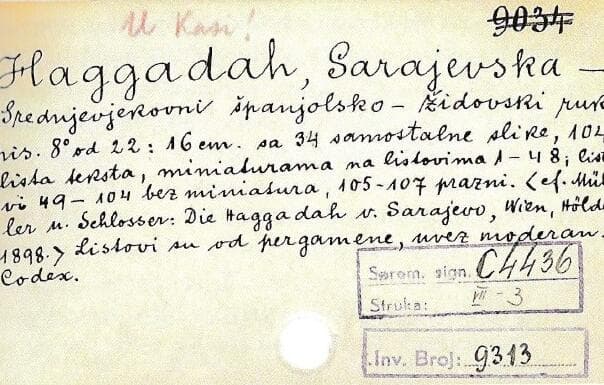 U Kasi!
9034
Haggadah, Sarajevska —
Srednjevjekovni španjolsko-židovski ruk
nis. 8° od 22 : 16 cm. sa 34 samostalne slike, 104
lista teksta, miniaturama na listovima 1-48; list
vi 49-104 bez miniatura, 105-107 prazni. <cf. Mül
ler u. Schlosser: Die Haggadah v. Sarajevo, Wien, Hölde
1898.> Listovi su od pergamene, uvez moderan.
Codex.
Sprem. sign. C4436
Struka: VII - 3
Inv. Broj: 9313